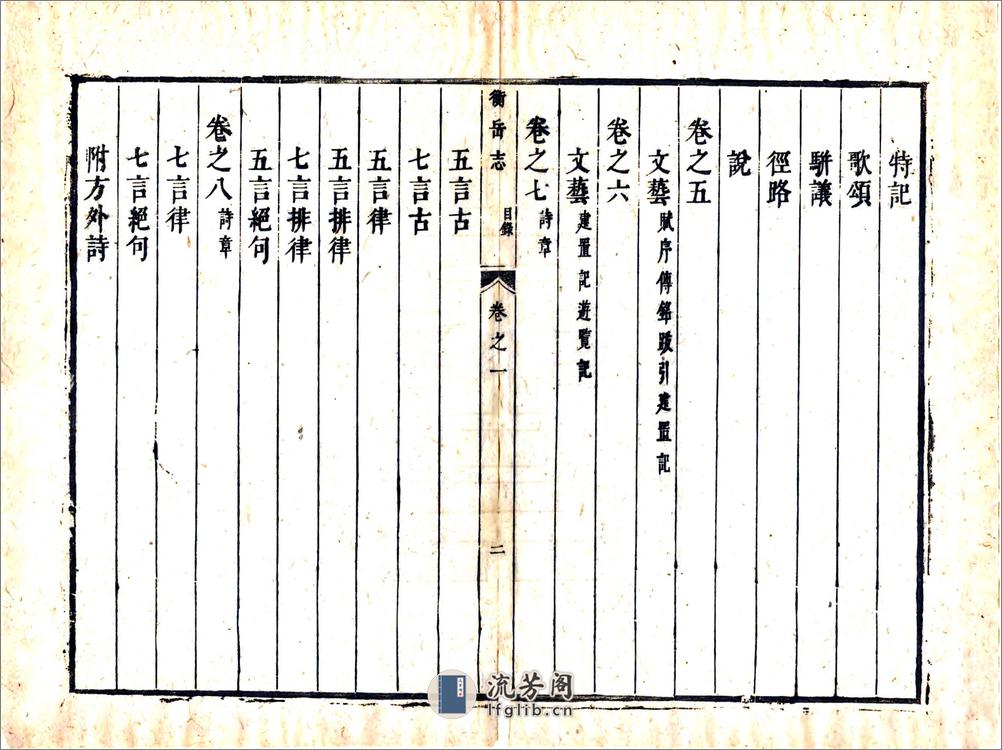 特記
歌頌
駢議
徑路
說
卷之五
文藝 賦序傳銘跋引建置記
卷之六
文藝 建置記遊覽記
卷之七 詩章
衡岳志 目錄 卷之一 二
五言古
七言古
五言律
五言排律
七言排律
五言絕句
卷之八 詩章
七言律
七言絕句
附方外詩
流芳阁
lfglib.cn